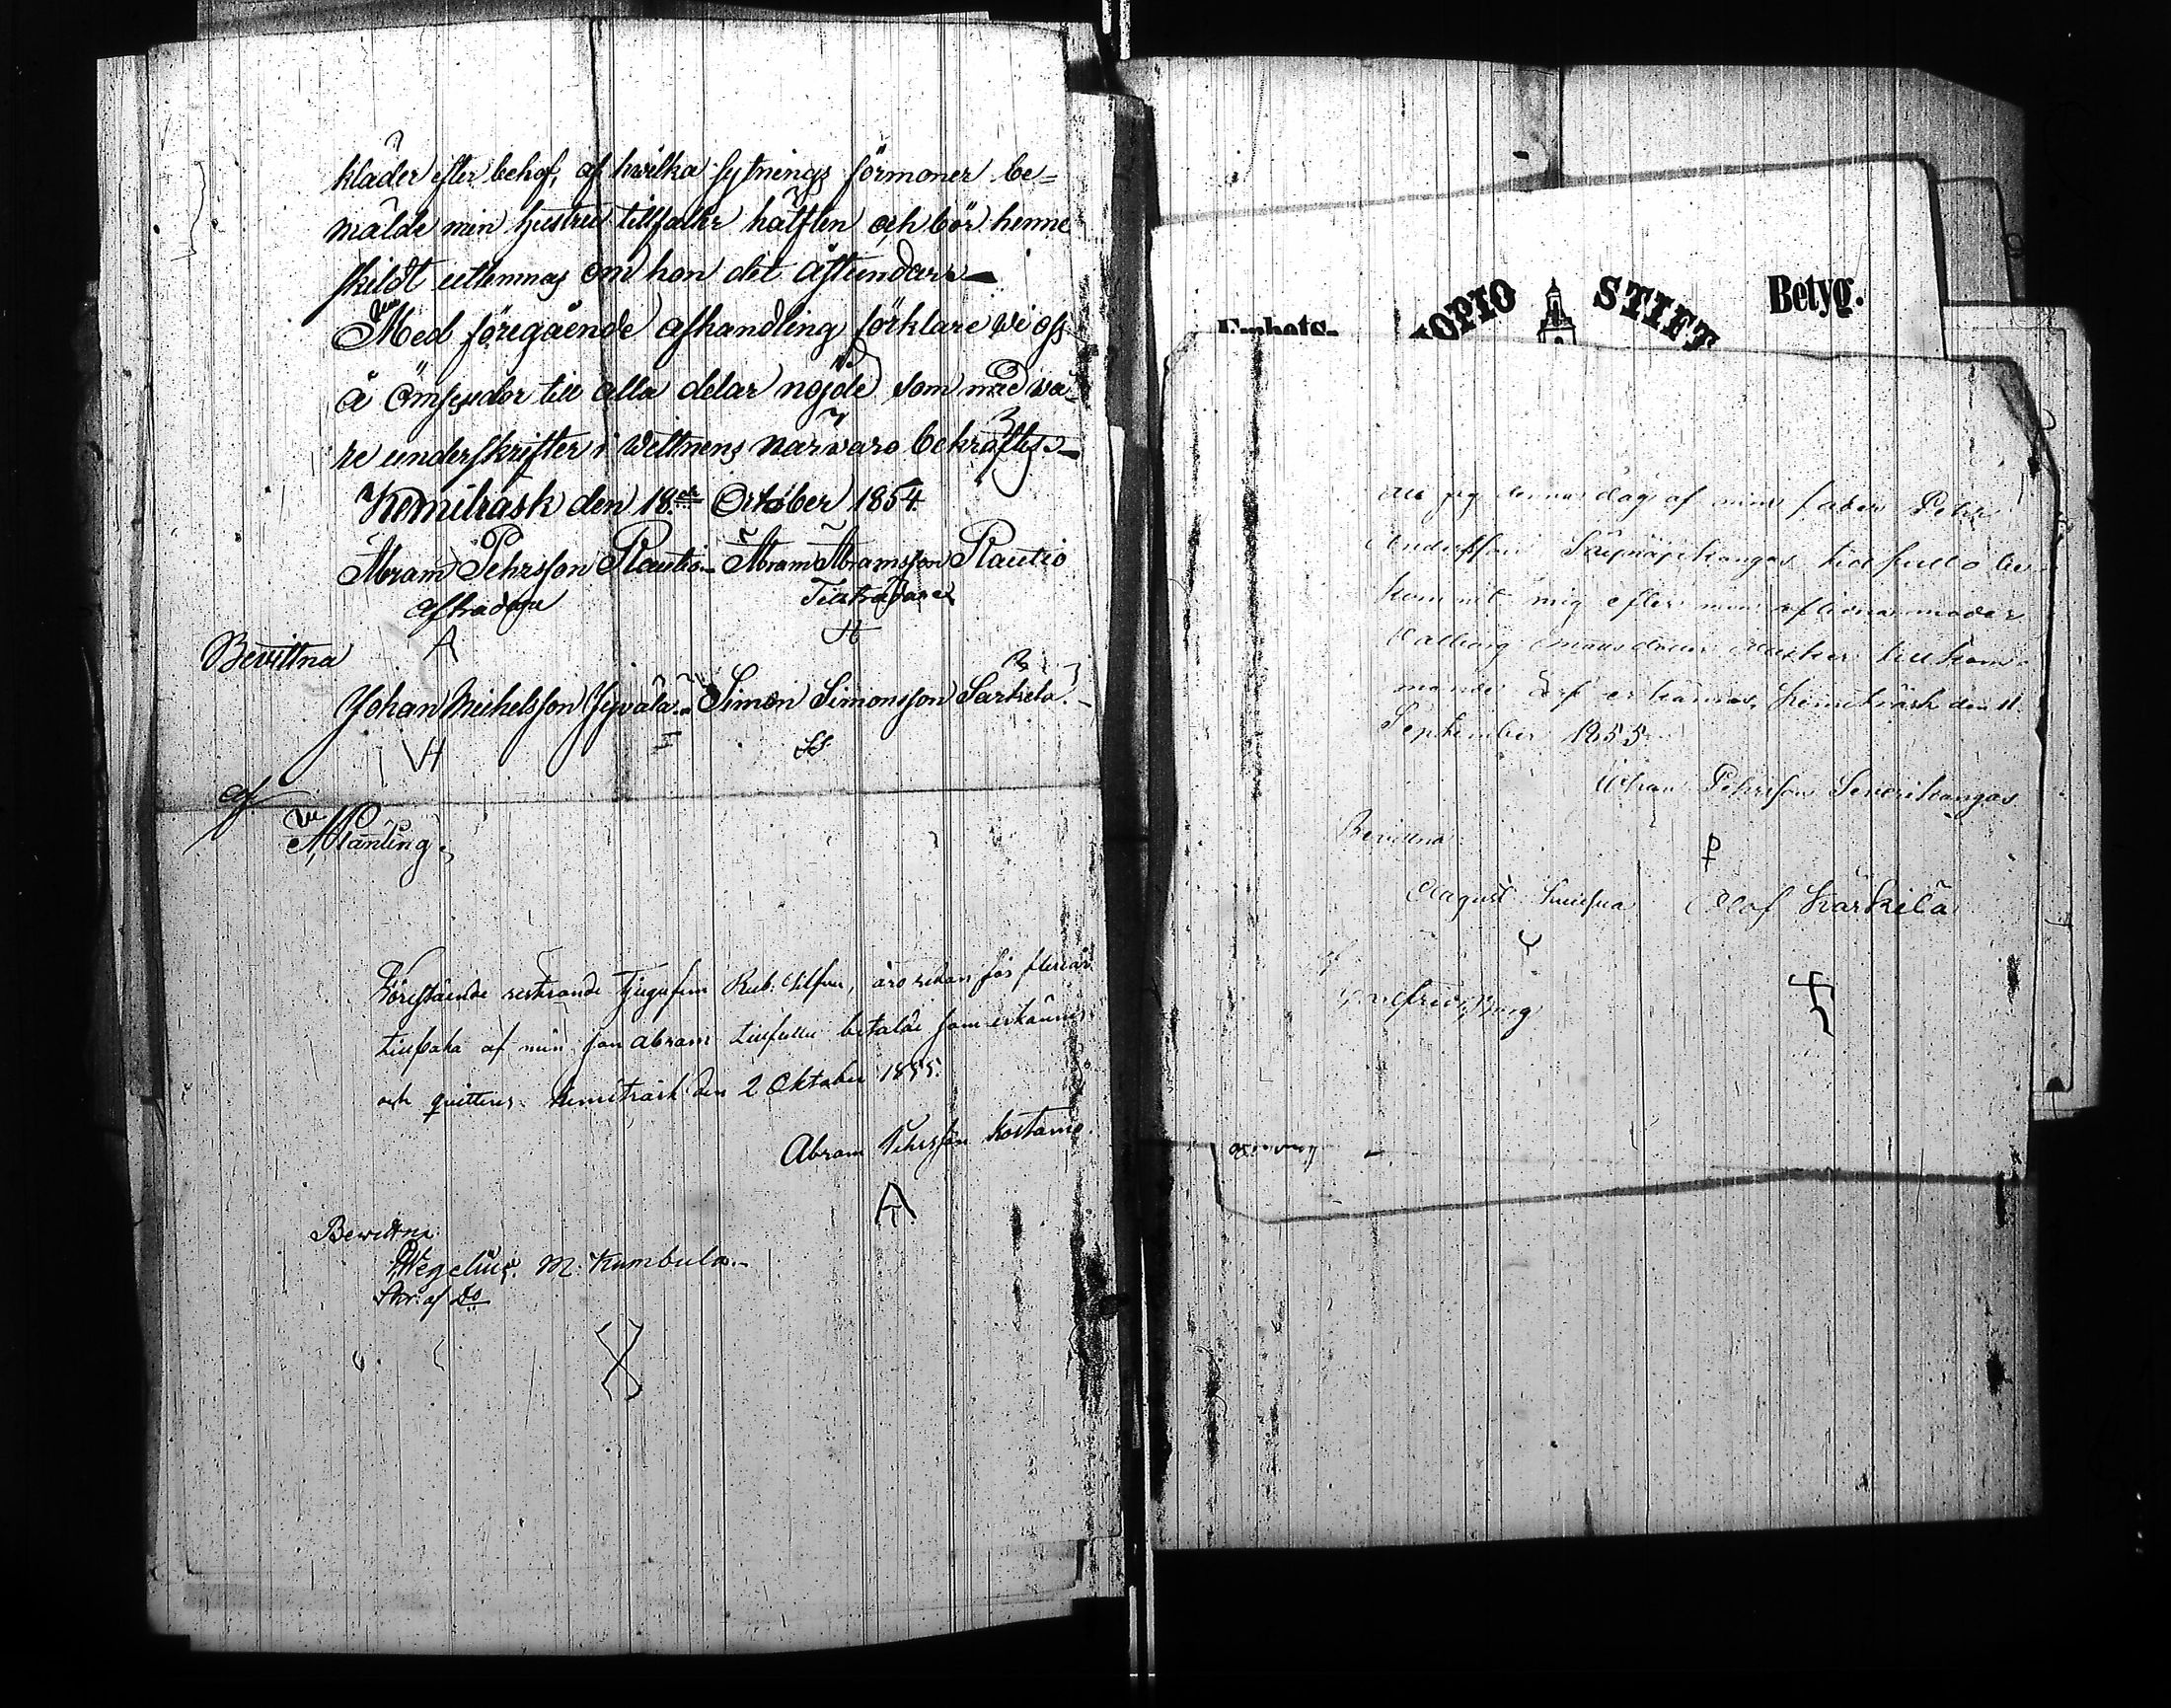 kläder efter behof, af hwilka sytnings förmoner be=
mälde min hustru tillfaller hälften och bör henne
skildt utlemnas om hon det åstundar.
Med föregående afhandling förklare wi oss
å ömsesidor till alla delar nöjde som med wå-
re underskrifter i wittnens närwaro bekräftes.
Kemiträsk den 18de October 1854.
Abram Pehrsson Rautio. Abram Abramsson Rautio
Afträdare Tillträdare
A H
Bevittna
Johan Michelsson Jyvälä. Simon Simonsson Särkelä.
af
Planting.
Förestående resterande Tjugufem Rub. Silfver, äro redan för flere år
tillbaka af min son Abram tillfullo betalde som erkännes
och quitteras. Kemiträsk den 2 Oktober 1855.
Abram Pehrsson Kostamo.
A
Bewittna
Wegelius. M. Kumbula.
Skr. af Do
KUOPIO STIFT Betyg.
Embets-
att jag denna dag af min fader Petter
Andersson kangas tillfullo be-
kommit mig efter min aflidna moder
Valborg dotter tillkom-
mande arf erkännes, Kemiträsk den 11
September 1855
Johan Pehrsson Severikangas
Bevittna
P
August Olof Kärkilä
af